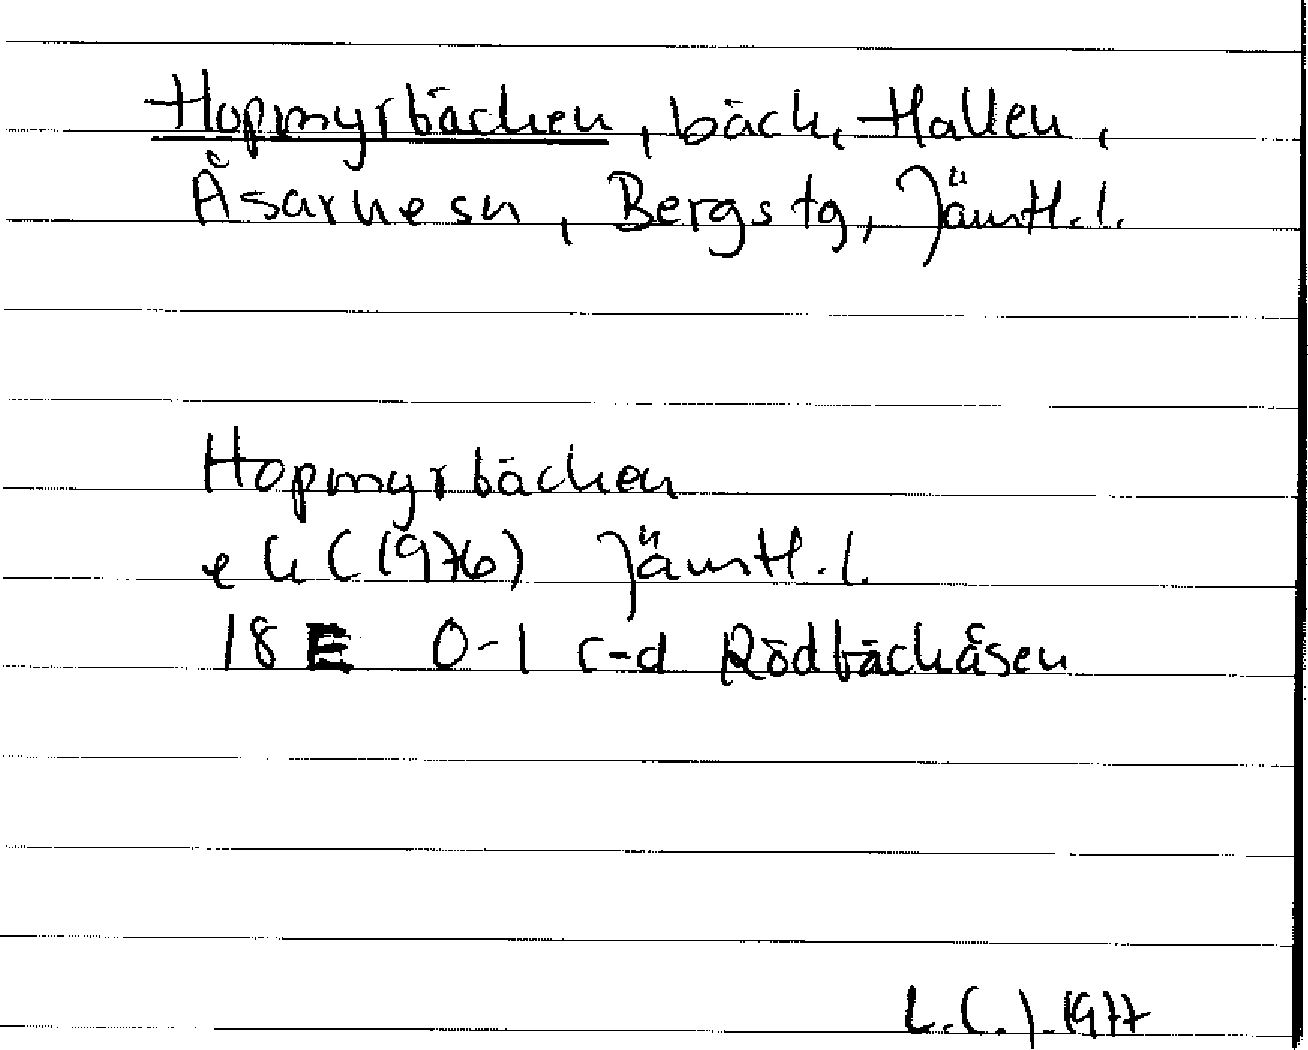 Hopmyrbäcken, bäck, Hallen,
Åsarne sn, Bergs tg, Jämtl. l.
Hopmyrbäcken
ek (1976) Jämtl. l.
18 E 0-1 c-d Rödbäckåsen
1977